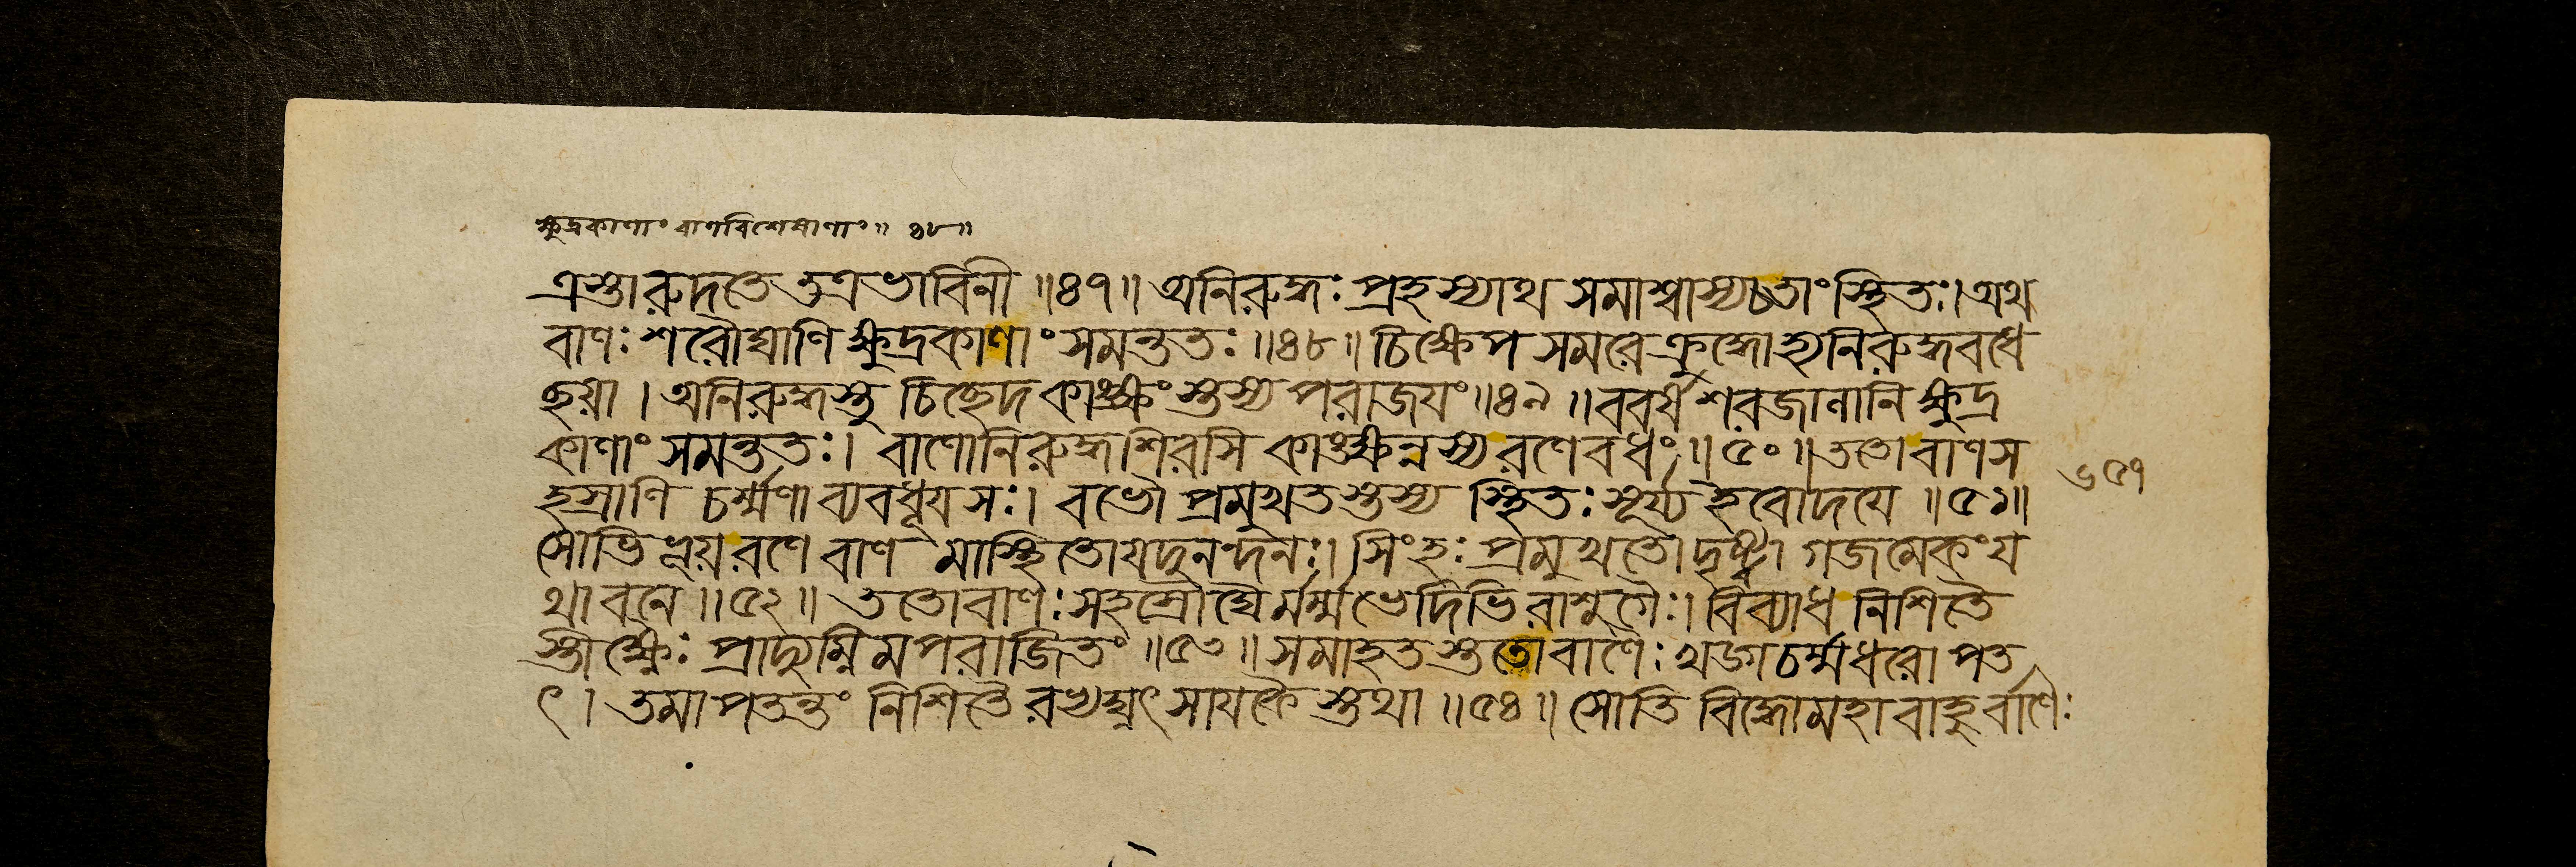 ক্ষুদ্রকাণাং বাণবিশেষাণাং॥ ৪৮॥
এস্তারুদতে তত্রভাবিনী॥৪৭॥ অনিরুদ্ধঃ প্রহস্যাথ সমাশ্বাস্যচতাং স্থিতঃ। অথ
বাণঃ শরৌঘাণি ক্ষুদ্রকাণাং সমন্ততঃ॥৪৮॥ চিক্ষেপ সমরে ক্রুদ্ধোহ্যনিরুদ্ধবধে
ছয়া। অনিরুদ্ধস্তু চিচ্ছেদ কাঙ্ক্ষংস্তস্য পরাজয়ং॥৪৯॥ ববর্ষ শরজালানি ক্ষুদ্র
কাণাং সমন্ততঃ। বাণোনিরুদ্ধশিরসি কাঙ্ক্ষন্নস্য রণেবধং॥৫০॥ ততোবাণস
হস্রাণি চর্ম্মণা ব্যবধূয়সঃ। বভৌ প্রমুখতস্তস্য স্থিতঃ সূর্য্যইবোদয়ে॥৫১॥ ৬৫৭
সোভিধূয় রণে বাণ মাস্থিতোযদুনন্দনঃ। সিংহঃ প্রমুখতোদৃষ্ট্বা গজমেকংয
থাবনে॥৫২॥ ততোবাণঃ সহস্রৌঘৈর্মর্ম্মভেদিভিরাশুগৈঃ। বিব্যাধ নিশিতৈ
স্তীক্ষ্ণৈঃ প্রাদ্যুম্নিমপরাজিতং॥৫৩॥ সমাহতস্ততোবাণৈঃ খড্গচর্ম্মধরোপত
ৎ। তমাপতন্তং নিশিতৈরভ্যঘ্নৎ সায়কৈস্তথা॥৫৪॥ সোতিবিদ্ধোমহাবাহুর্বাণৈঃ